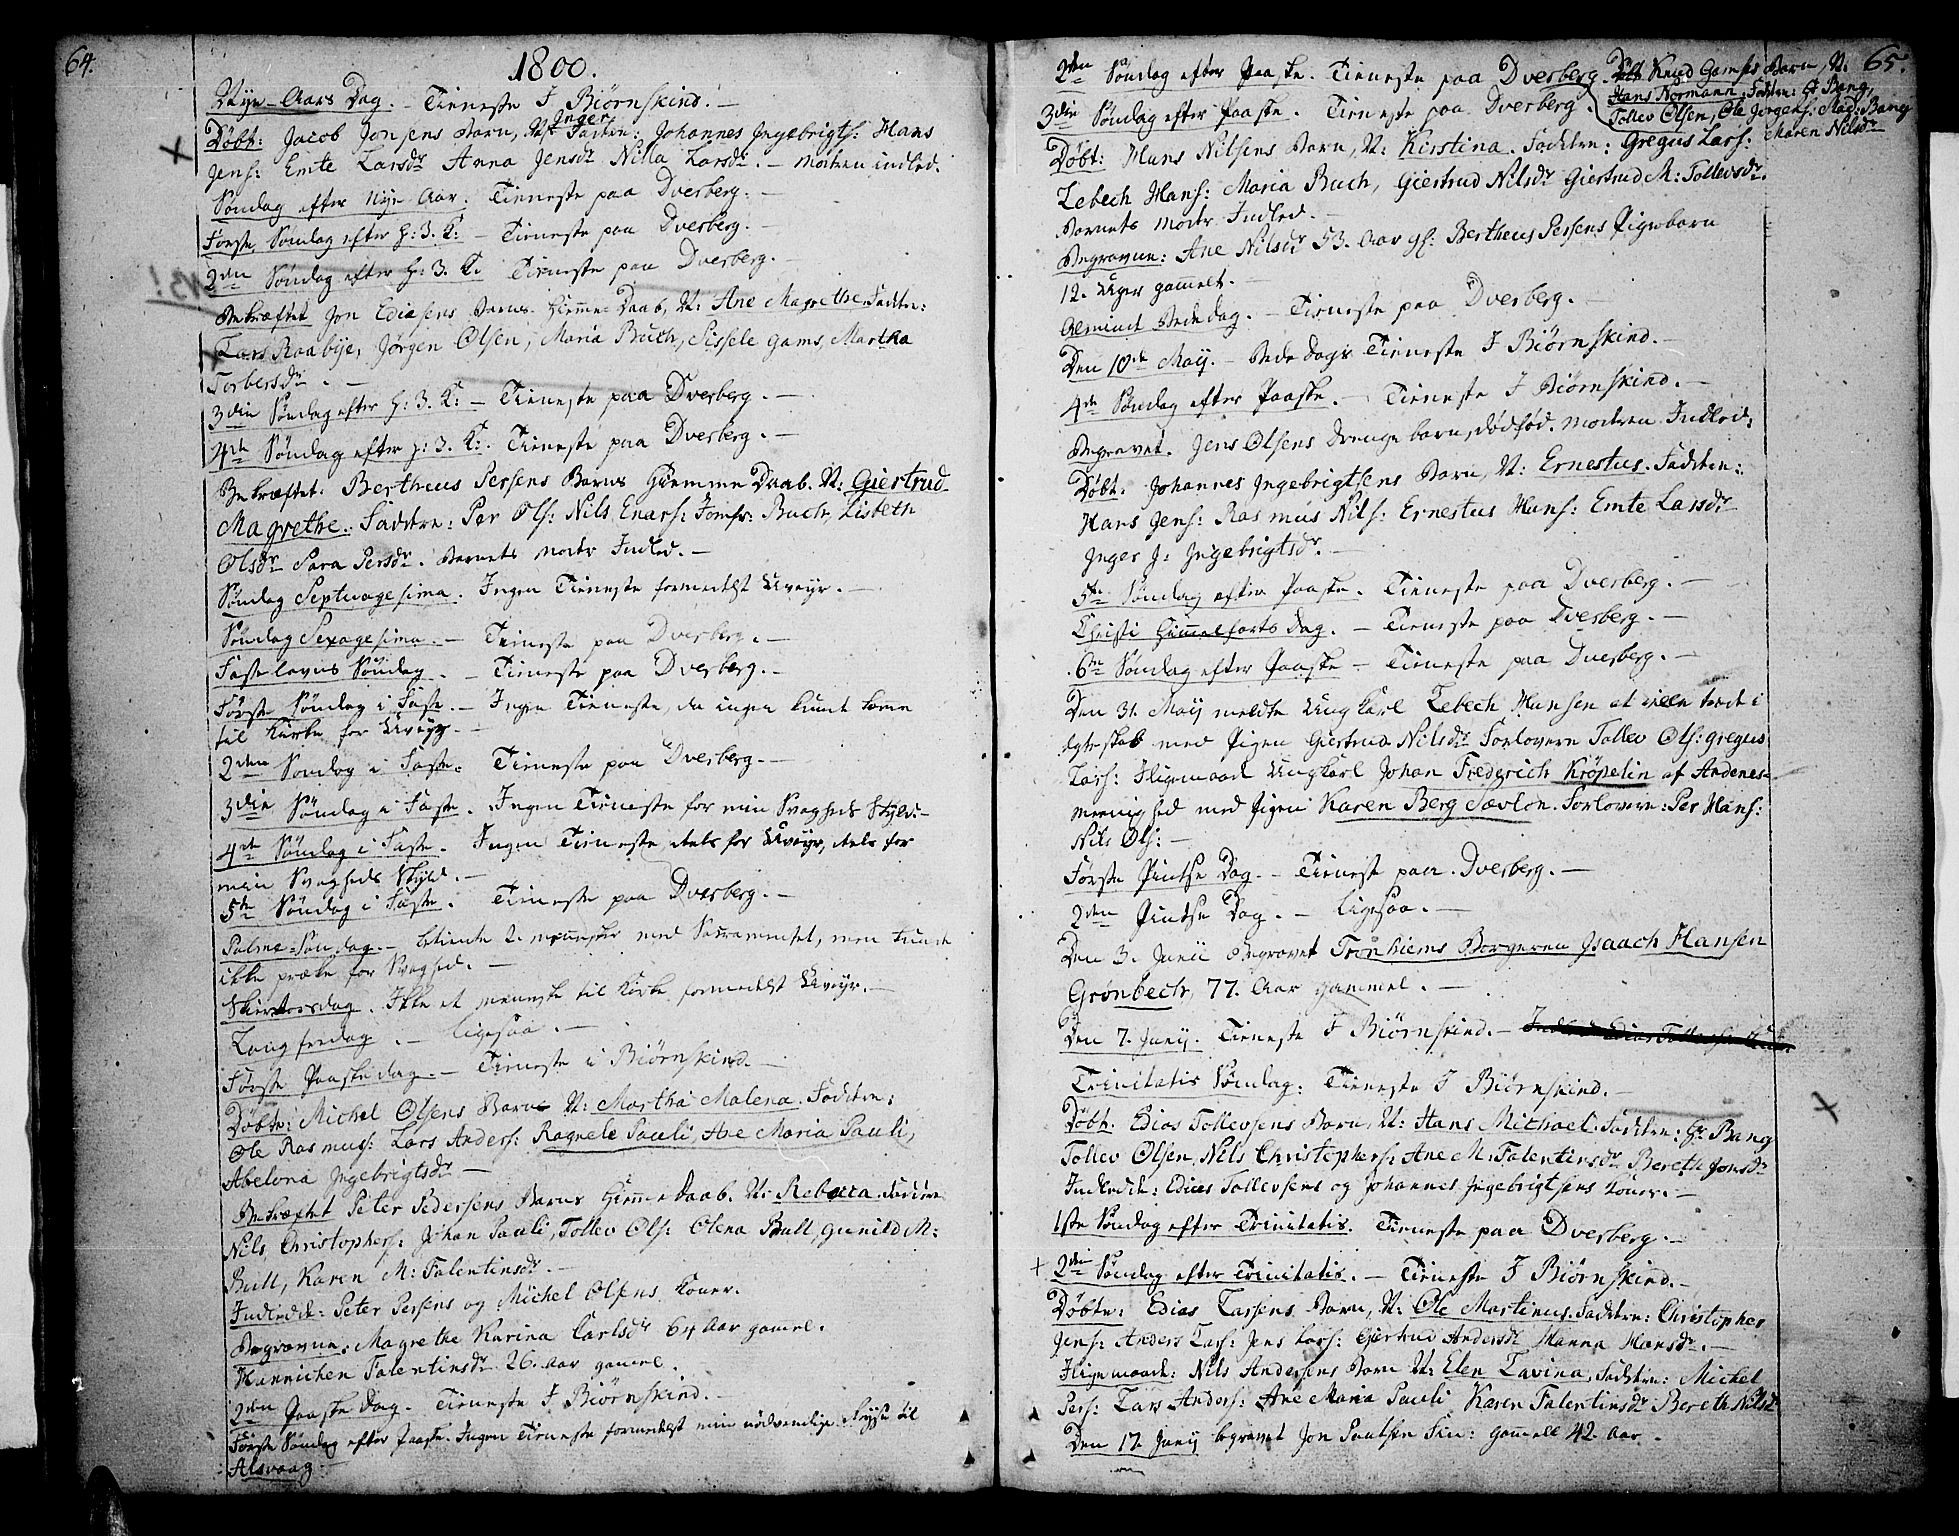 64.
1800.
Nye-Aars Dag. - Tieneste I Biørnskind. -
Døbt: Jacob Jonsens Barn, N: Inger Faddere: Johannes Ingebrigts: Hans
Jens: Emte Larsdr Anna Jensdr Nilla Larsdr. - Modren indled.
Søndag efter Nye Aar. Tieneste paa Dverberg. -
Første Søndag efter H: 3. K: - Tieneste paa Dverberg. -
2den Søndag efter H: 3. K. Tieneste paa Dverberg. -
NB!
Bekræftet Jon Ediasens Barns Hiemme-Daab, N: Ane Magrethe Faddre:
Lars Raabye, Jørgen Olsen, Maria Buch, Sissele Gams, Martha
Torbersdr. -
3die Søndag efter H: 3. K: - Tieneste paa Dverberg. -
4de Søndag efter H: 3. K: Tieneste paa Dverberg. -
Bekræftet. Bertheus Persens Barns Hiemme Daab. N: Giertrud
Magrethe. Faddere: Per Ols: Nils Enars: Jomfr: Buch, Lisbeth
Olsdr Sara Persdr. Barnets Moder Indled. -
Søndag Septuagesima. Ingen Tieneste formedelst Uveyr. -
Søndag Sexagesima. - Tieneste paa Dverberg. -
Fastelavns Søndag. - Tieneste paa Dverberg. -
Første Søndag i Faste. - Ingen Tieneste, da ingen kunde komme
til Kirke for Uveyr. -
2den Søndag i Faste. Tieneste paa Dverberg. -
3die Søndag i Faste. Ingen Tieneste for min Svagheds Skyld: -
4de Søndag i Faste. Ingen Tieneste dels for Uveyr, dels for
min Svagheds Skyld. -
5te Søndag i Faste. Tieneste paa Dverberg. -
Palme-Søndag. - betiente 2. mennesker med Sacramentet, men kunde
ikke præke for Svaghed. -
Skiertorsdag. Ikke et menneske til Kirke formedelst Uveyr. -
Langfredag. - ligesaa. -
Første Paaskedag. - Tieneste i Biørnskind. -
Døbte: Michel Olsens Barn N: Martha Malena. Faddere:
Ole Rasmus: Lars Anders: Ragnele Pauli, Ane Maria Pauli,
Abelona Ingebrigtsdr -
Bekræftet Peter Pedersens Barns Hiemme Daab. N: Rebecca. Faddere
Nils Christophers: Johan Pauli, Tollev Ols: Olena Bull, Gunild M:
Bull, Karen M: Falentinsdr. -
Indledde: Peter Persens og Michel Olsens Koner.
Begravne: Magrethe Karina Carlsdr 64 Aar gamel.
Hannichen Falentinsdr 26. Aar gamel.
2den Paaske Dag. Tieneste I Biørnskind. -
Første Søndag efter Paaske. Ingen Tieneste formedelst min nødvendige Reyse til
Alsvaag.
65.
2den Søndag efter Paaske. Tieneste paa Dverberg. Døbt Knud Gamses Barn, N:
Hans Normann. Faddere: Hr Bang,
Tollev Olsen, Ole Jørgens: Mad: Bang
Maren Nilsdr
3die Søndag efter Paaske. Tieneste paa Dverberg.
Døbt: Hans Nilsens Barn, N: Kirstina. Faddere: Gregus Lars:
Zebech Hans: Maria Buch, Giertrud Nilsdr Giertrud M: Tollevsdr.
Barnets Moder Indled. -
Begravne: Ane Nilsdr 53. Aar gl: Bertheus Persens Pigebarn
12. Uger gammelt. -
Almindl Bededag. - Tieneste paa Dverberg. -
Den 10de Maij. - Bede Dags Tieneste I Biørnskind. -
4de Søndag efter Paaske. - Tieneste I Biørnskind. -
Begravet. Jens Olsens Drenge barn, dødfød. Modren Indled.
Døbt. Johannes Ingebrigtsens Barn, N: Ernestus. Faddere:
Hans Jens: Rasmus Nils: Ernestus Hans: Emte Larsdr
Inger J: Ingebrigtsdr. -
5te Søndag efter Paaske. Tieneste paa Dverberg. -
Christi Himmelfarts Dag. - Tieneste paa Dverberg. -
6te Søndag efter Paaske - Tieneste paa Dverberg. -
Den 31. Maij meldte Ungkarl Zebech Hansen at ville træde i
Egteskab med Pigen Giertrud Nilsdr Forlovere Tollev Ols: Gregus
Lars: Iligemaade Ungkarl Johan Frederich Krøpelin af Andenes-
meenighed med Pigen Karen Berg Sævlon. Forlovere: Per Hans:
Nils Ols: -
Første Pintse Dag. - Tieneste paa Dverberg. -
2den Pintse Dag. - ligesaa. -
Den 3. Junii Begravet Tronhiems Borgeren Isaach Hansen
Grønbech, 77. Aar gammel. -
Den 7. Junij. Tieneste I Biørnskind. -
Trinitatis Søndag. Tieneste I Biørnskind. -
Døbt. Edias Tollevsens Barn, N: Hans Michael. Faddere: Hr Bang
Tollev Olsen, Nils Christophers: Ane M: Falentinsdr Bereth Jonsdr
Indledde: Edias Tollevsens og Johannes Ingebrigtsens Koner. -
1ste Søndag efter Trinitatis. Tieneste paa Dverberg. -
2den Søndag efter Trinitatis. - Tieneste I Biørnskind. -
Døbte: Edias Larsens Barn, N: Ole Martinus. Faddere: Christopher
Jens: Anders Lars: Jens Lars: Giertrud Andersdr Hanna Hansdr. -
Iligemaade: Nils Andersens Barn N: Elen Lavina, Faddere: Michel
Pers: Lars Anders: Ane Maria Pauli Karen Falentinsdr Bereth Nilsdr
Den 17 Junij begravet Jon Paulsen Fin: gamell 42. Aar.